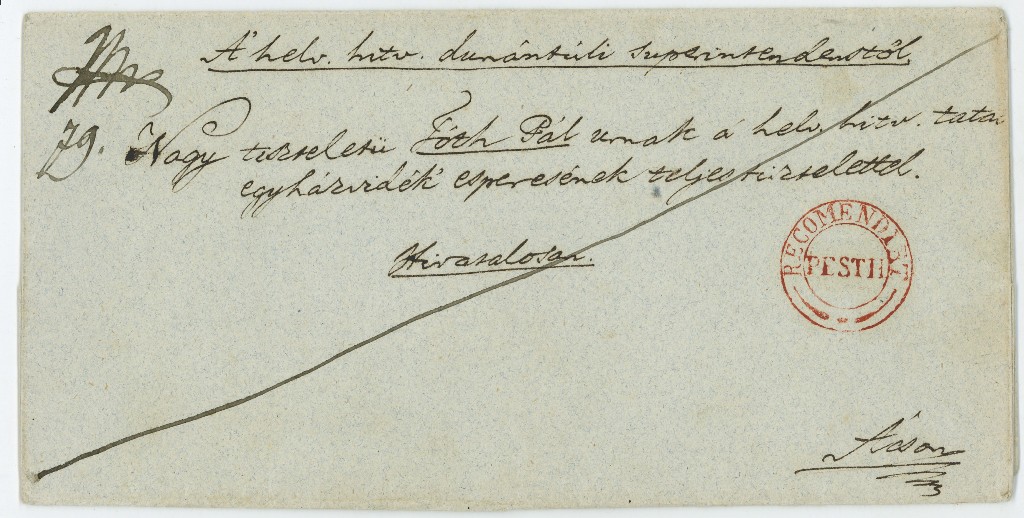 A' helv. hitv. dunántúli superintendenstől.
79. Nagy tiszteletü Tóth Pál urnak a' helv. hitv. tatai
egyházvidék' esperesének teljes tisztelettel.
Hivatalosan.
RECOMENDIRT
PESTH
Ácson